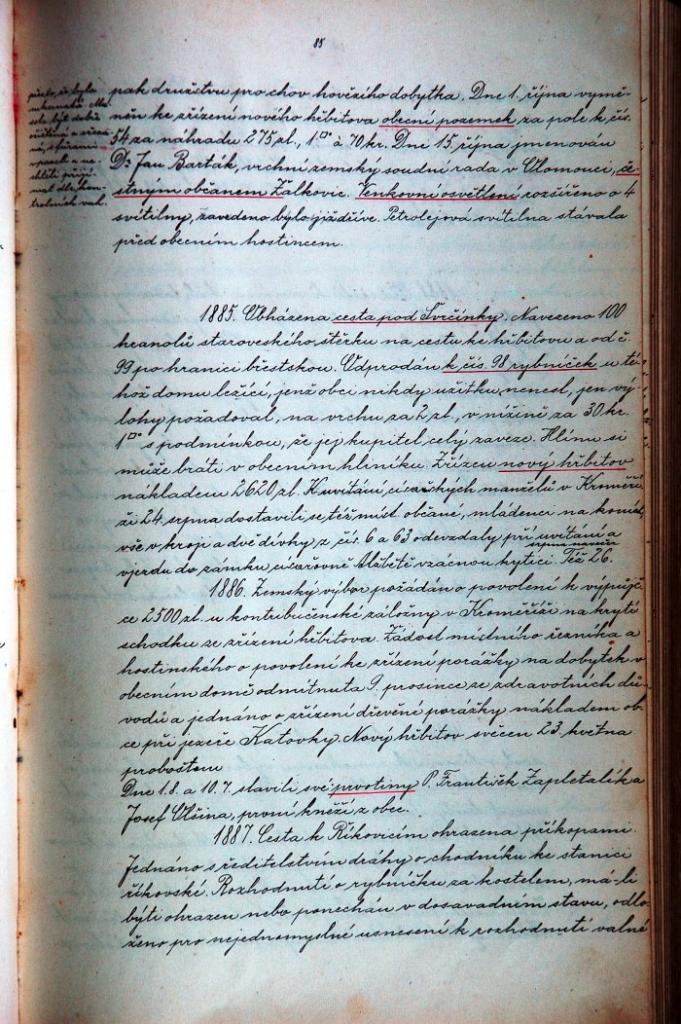 85
pak družstvu pro chov hovězího dobytka. Dne 1. října vymě-
něn ke zřízení nového hřbitova obecní pozemek za pole k čís.
54 za náhradu 275 zl., 1□° à 70 kr. Dne 15. října jmenován
Dr. Jan Barták, vrchní zemský soudní rada v Olomouci, če-
stným občanem Žalkovic. Venkovní osvětlení rozšířeno o 4
svítilny, zavedeno bylo již dříve. Petrolejová svítilna stávala
před obecním hostincem.
1885. Obházena cesta pod Svrčinky. Navezeno 100
hranolů staroveského štěrku na cestu ke hřbitovu a od č.
99 po hranici břestskou. Odprodán k čís. 98 rybníček u té-
hož domu ležící, jenž obci nikdy užitku nenesl, jen vý-
lohy požadoval, na vrchu za 2 zl., v nížině za 30 kr.
1□° s podmínkou, že jej kupitel celý zaveze. Hlínu si
může bráti v obecním hliníku. Zřízen nový hřbitov
nákladem 2620 zl. K uvítání císařských manželů v Kroměří-
ži 24. srpna dostavili se též míst. občané, mládenci na koních,
vše v kroji a dvě dívky z čís. 6 a 63 odevzdaly při uvítání a
vjezdu do zámku císařovně Alžbětě vzácnou kytici. Též 26.
srpna navečer
1886. Zemský výbor požádán o povolení k výpůjč-
ce 2500 zl. u kontribučenské záložny v Kroměříži na krytí
schodku ze zřízení hřbitova. Žádost místního řezníka a
hostinského o povolení ke zřízení porážky na dobytek v
obecním domě odmítnuta 9. prosince ze zdravotních dů-
vodů a jednáno o zřízení dřevěné porážky nákladem ob-
ce při jezeře Katovky. Nový hřbitov svěcen 23. května
proboštem
Dne 1.8. a 10.7. slavili své prvotiny P. František Zapletalík a
Josef Olšina, první kněží z obce.
1887. Cesta k Říkovicím ohrazena příkopami.
Jednáno s ředitelstvím dráhy o chodníku ke stanici
říkovské. Rozhodnutí o rybníčku za kostelem, má-li
býti ohrazen nebo ponechán v dosavadním stavu, odlo-
ženo pro nejednomyslné usnesení k rozhodnutí valné